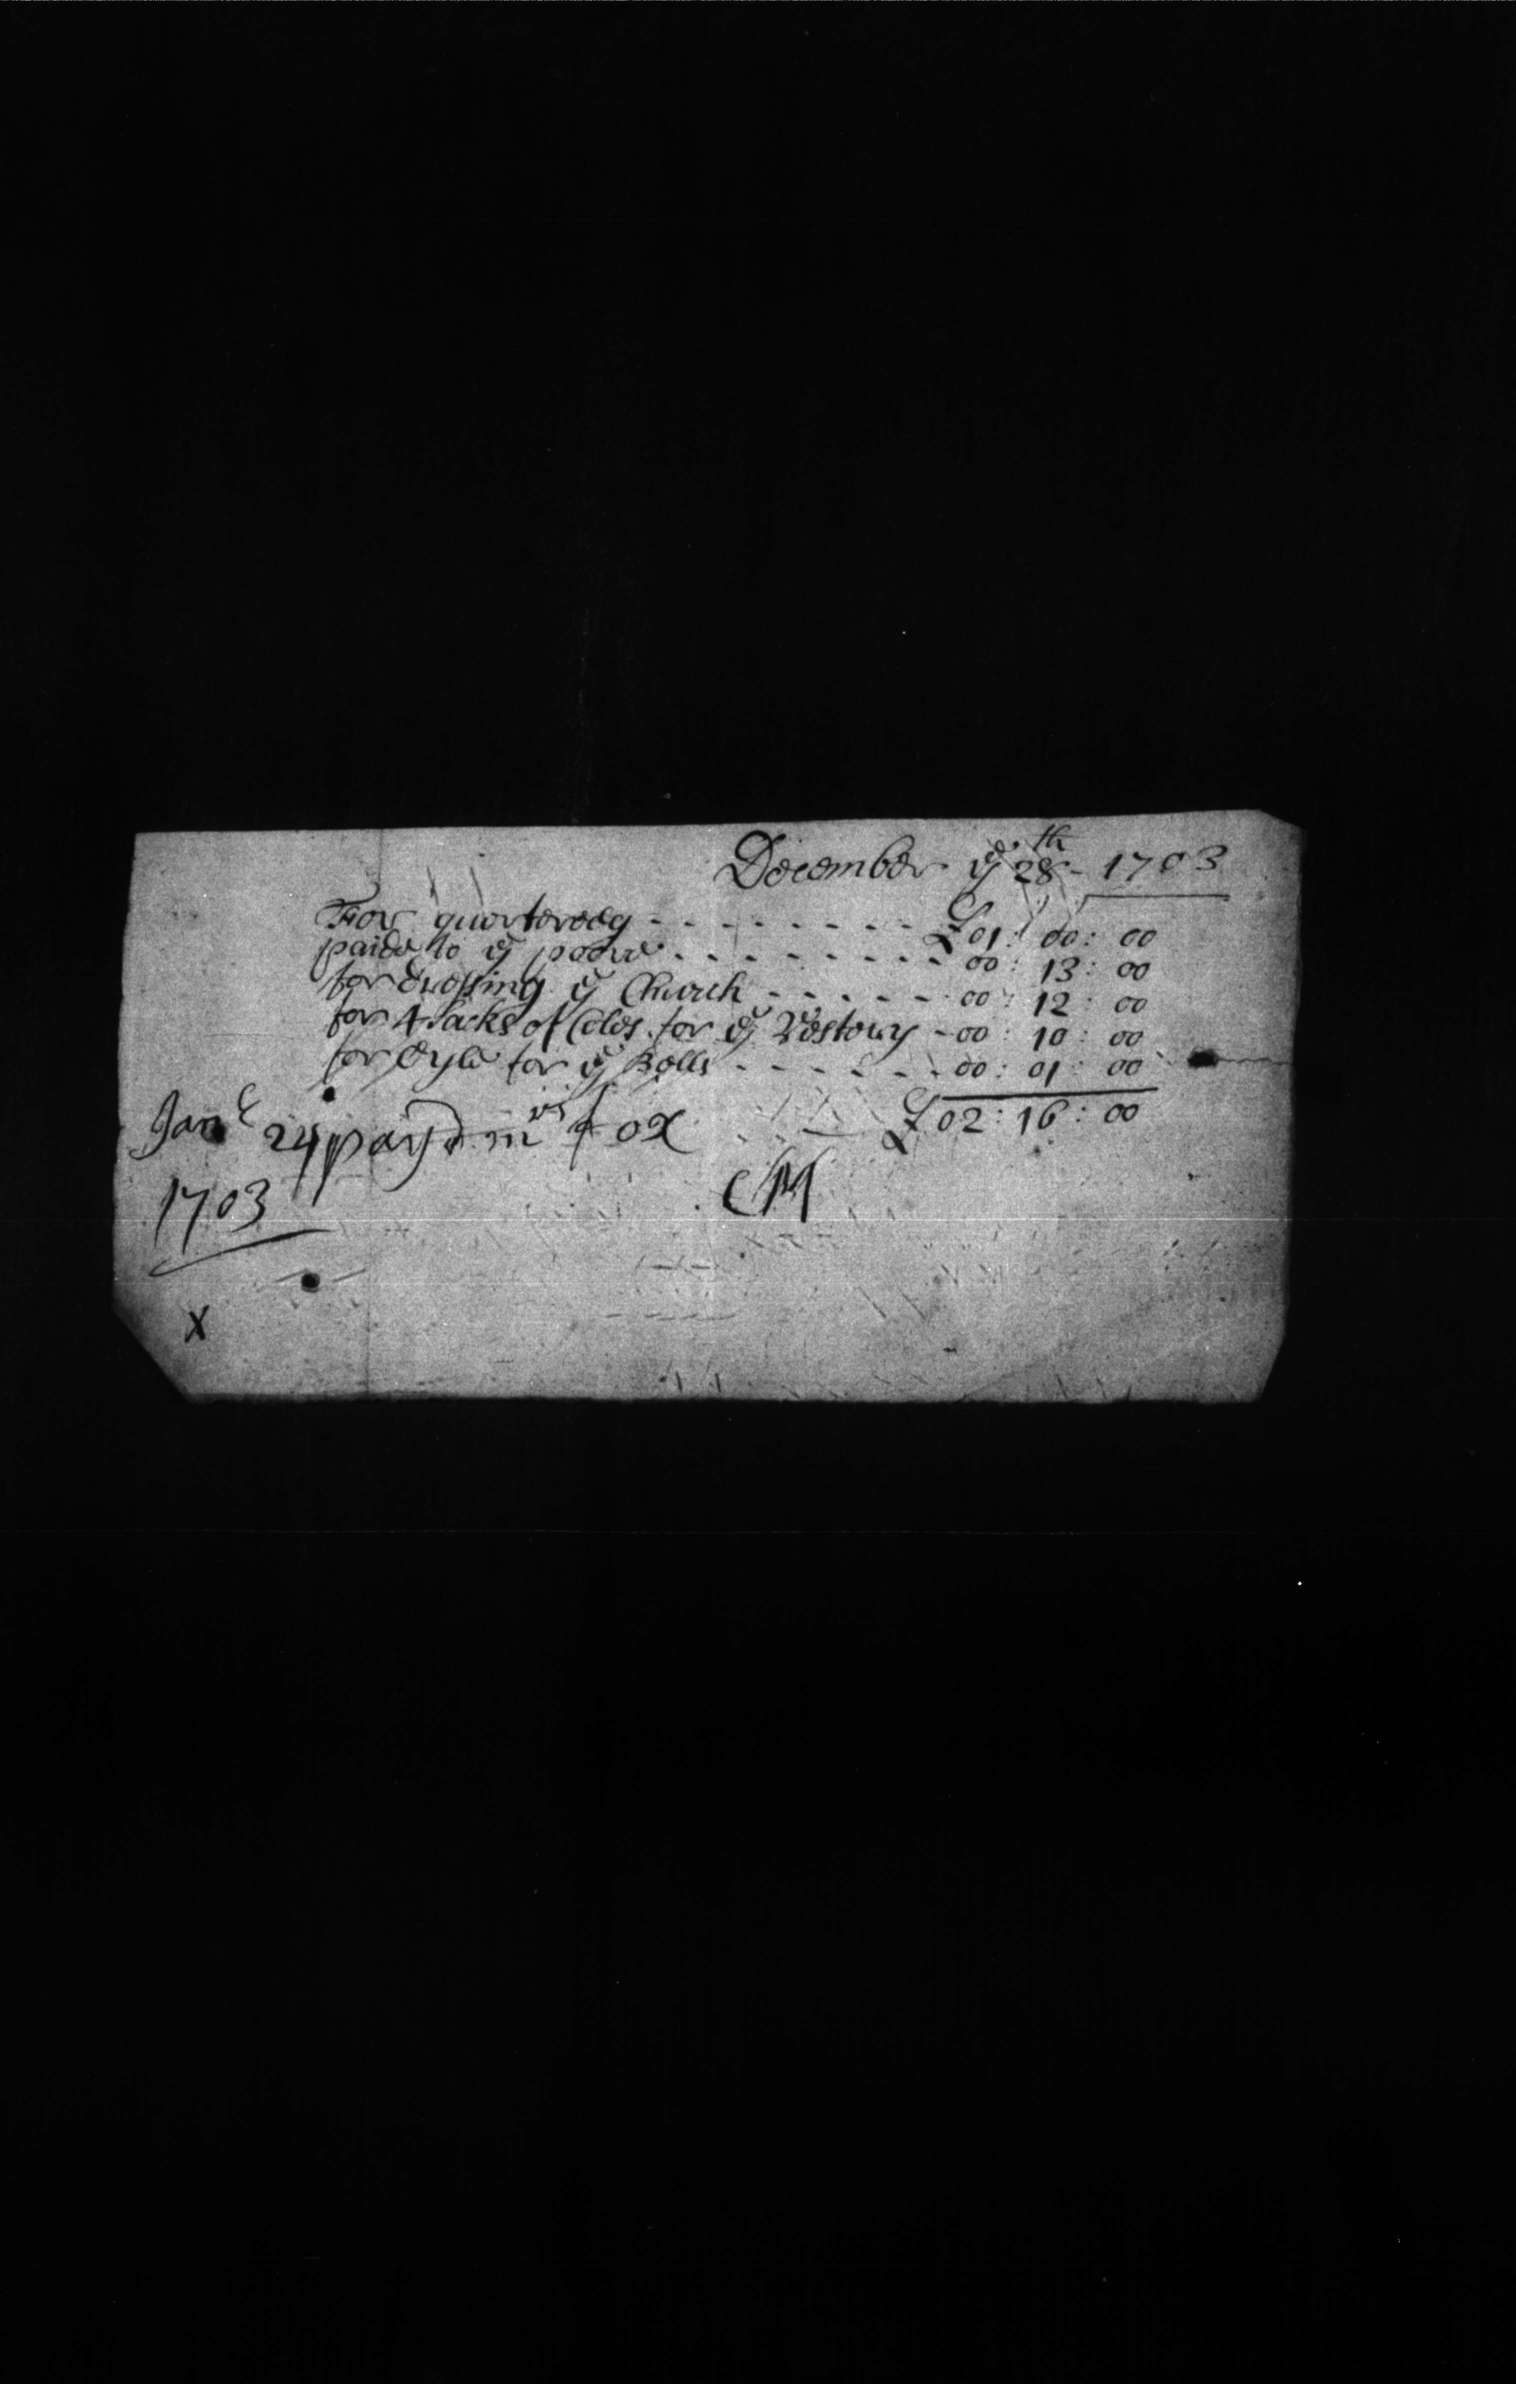 December ye 28th - 1703
For quarteredg - - - - - - - - £01 : 00 : 00
paide to ye poore - - - - - - - - 00 : 13 : 00
for dressing ye Church - - - - - 00 : 12 : 00
for 4 sacks of Coles for ye Vestory - 00 : 10 : 00
for Oyle for ye Bells - - - - - - 00 : 01 : 00
£02 : 16 : 00
Jane 24 payd mrs Fox
1703
CM
X